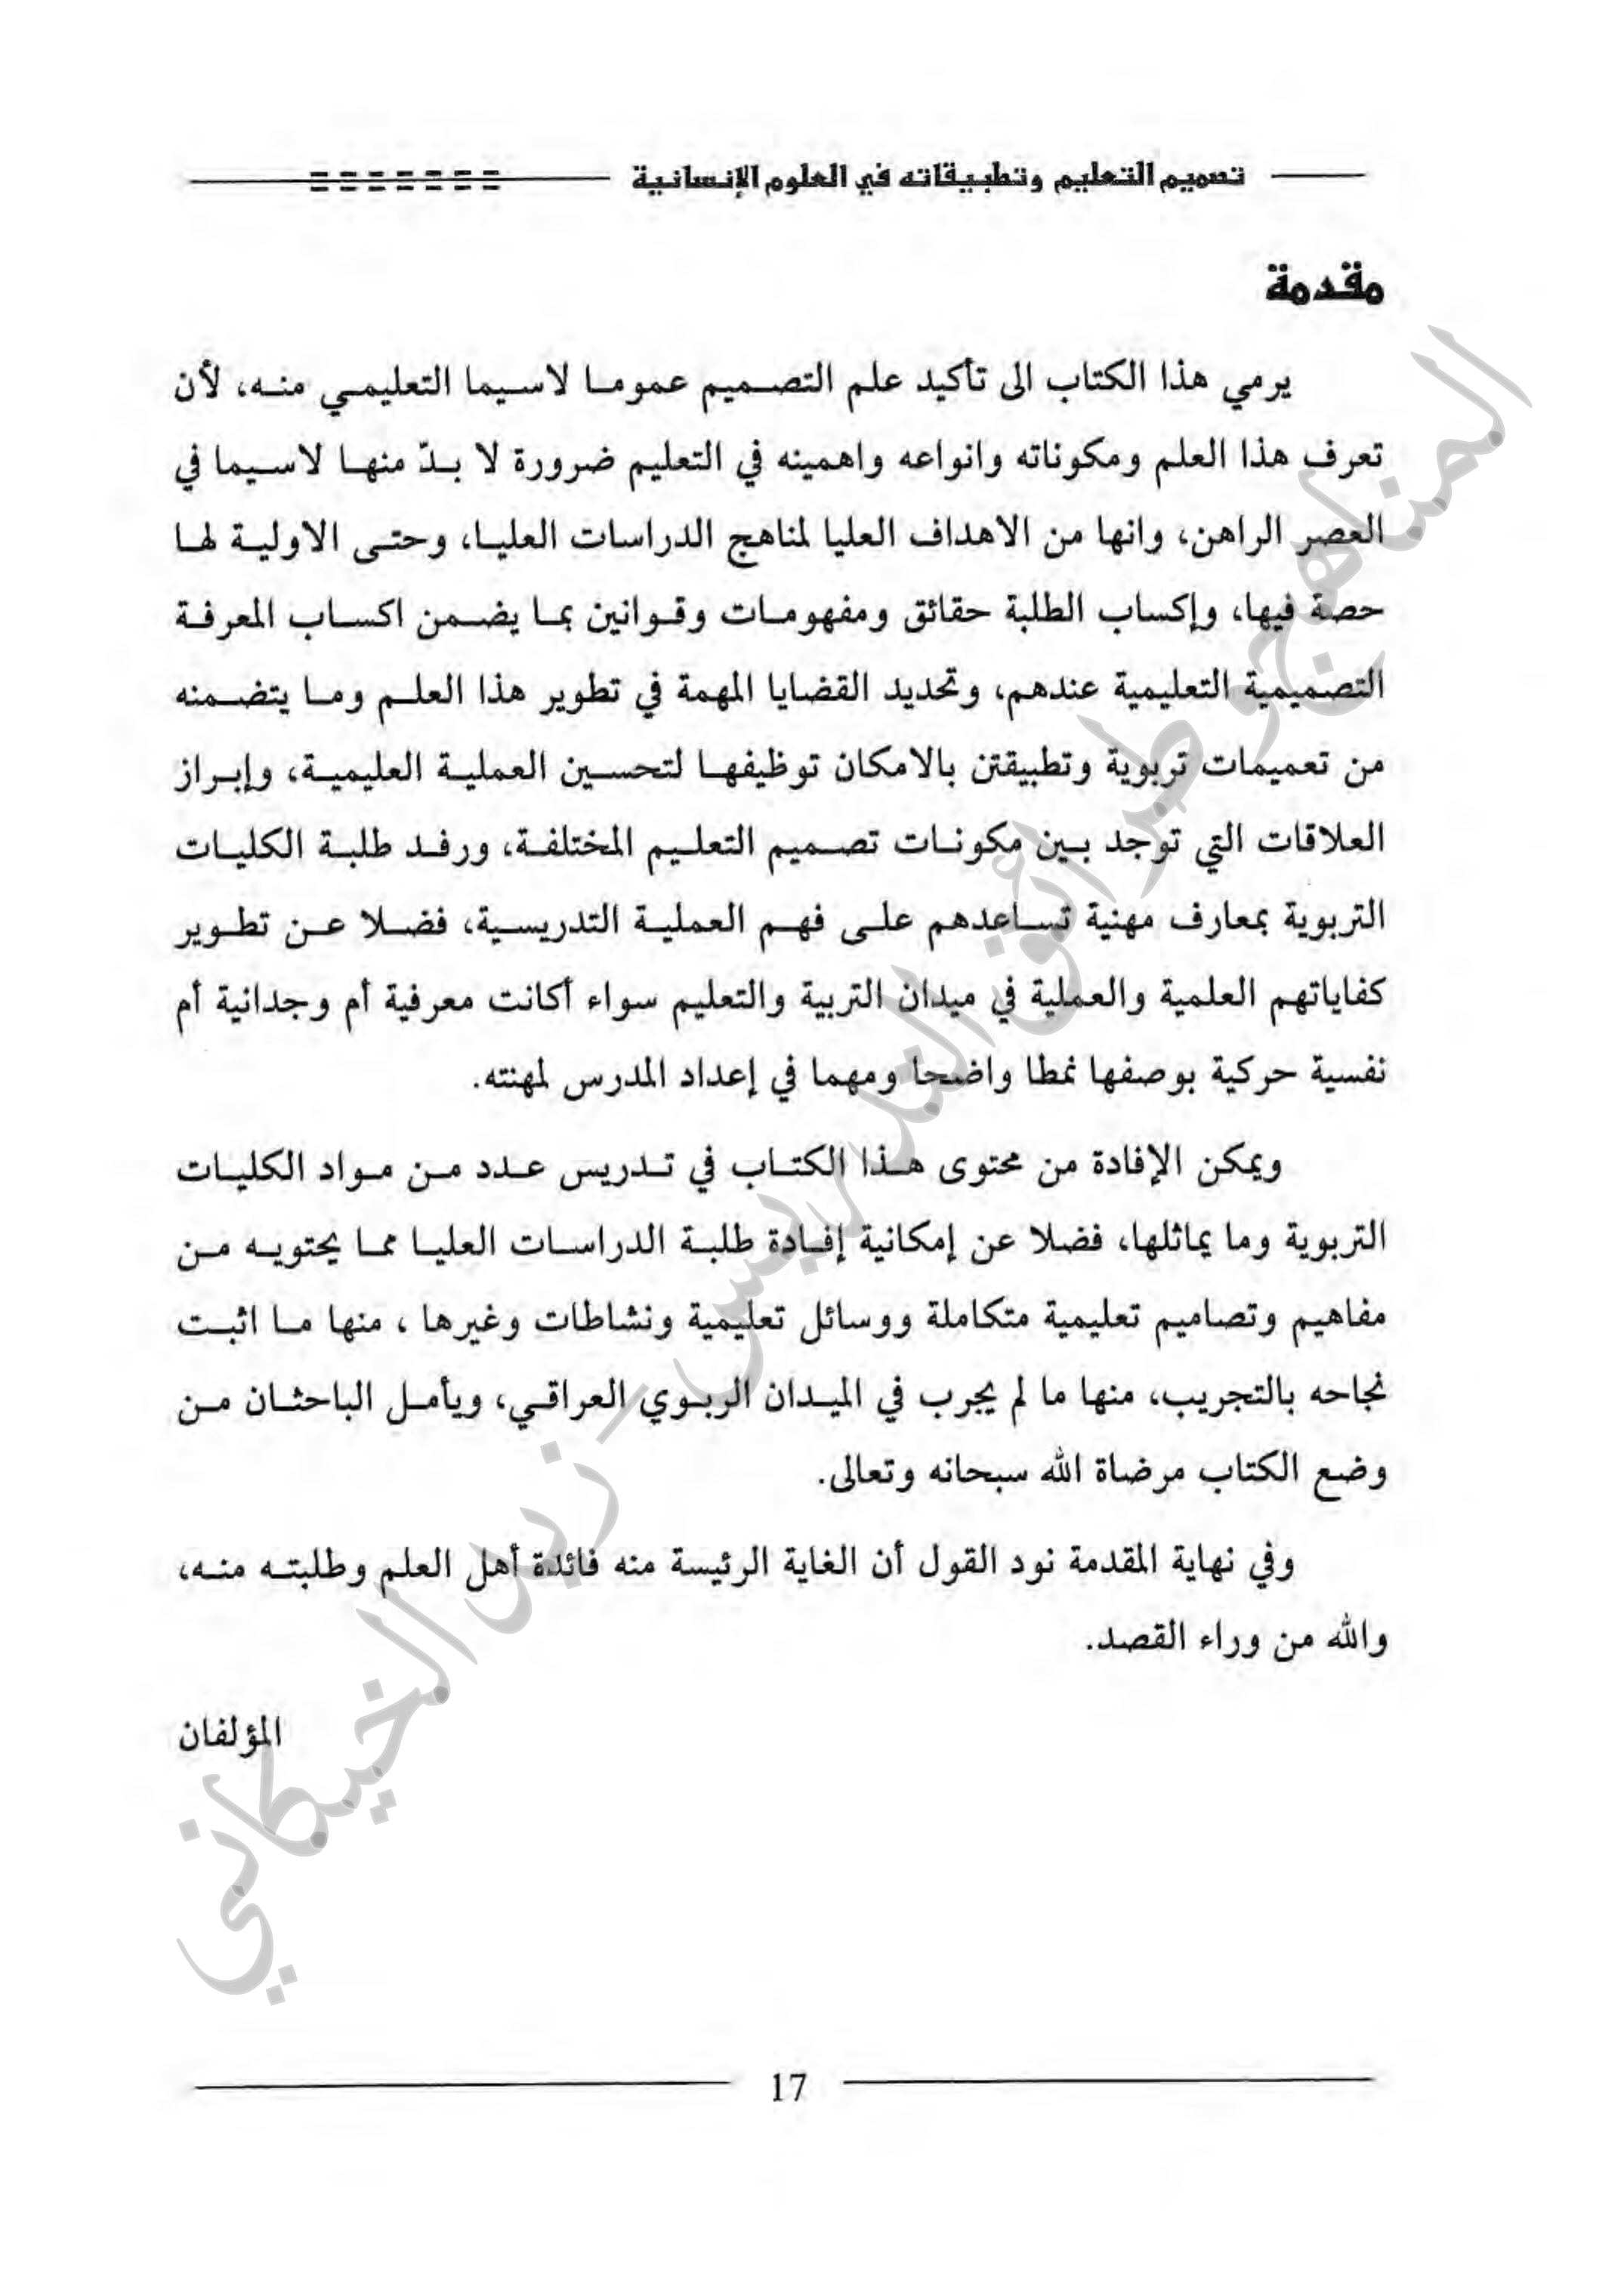 تصميم التعليم وتطبيقاته في العلوم الإنسانية
مقدمة
يرمي هذا الكتاب الى تأكيد علم التصميم عموما لاسيما التعليمي منه، لأن
تعرف هذا العلم ومكوناته وانواعه واهمينه في التعليم ضرورة لا بدّ منها لاسيما في
العصر الراهن، وانها من الاهداف العليا لمناهج الدراسات العليا، وحتى الاولية لها
حصة فيها، وإكساب الطلبة حقائق ومفهومات وقوانين بما يضمن اكساب المعرفة
التصميمية التعليمية عندهم، وتحديد القضايا المهمة في تطوير هذا العلم وما يتضمنه
من تعميمات تربوية وتطبيقتن بالامكان توظيفها لتحسين العملية العليمية، وإبراز
العلاقات التي توجد بين مكونات تصميم التعليم المختلفة، ورفد طلبة الكليات
التربوية بمعارف مهنية تساعدهم على فهم العملية التدريسية، فضلا عن تطوير
كفاياتهم العلمية والعملية في ميدان التربية والتعليم سواء أكانت معرفية أم وجدانية أم
نفسية حركية بوصفها نمطا واضحا ومهما في إعداد المدرس لمهنته.
ويمكن الإفادة من محتوى هذا الكتاب في تدريس عدد من مواد الكليات
التربوية وما يماثلها، فضلا عن إمكانية إفادة طلبة الدراسات العليا مما يحتويه من
مفاهيم وتصاميم تعليمية متكاملة ووسائل تعليمية ونشاطات وغيرها ، منها ما اثبت
نجاحه بالتجريب، منها ما لم يجرب في الميدان الربوي العراقي، ويأمل الباحثان من
وضع الكتاب مرضاة الله سبحانه وتعالى.
وفي نهاية المقدمة نود القول أن الغاية الرئيسة منه فائدة أهل العلم وطلبته منه،
والله من وراء القصد.
المؤلفان
المناهج وطرائق التدريس - زيد الخيكاني
17